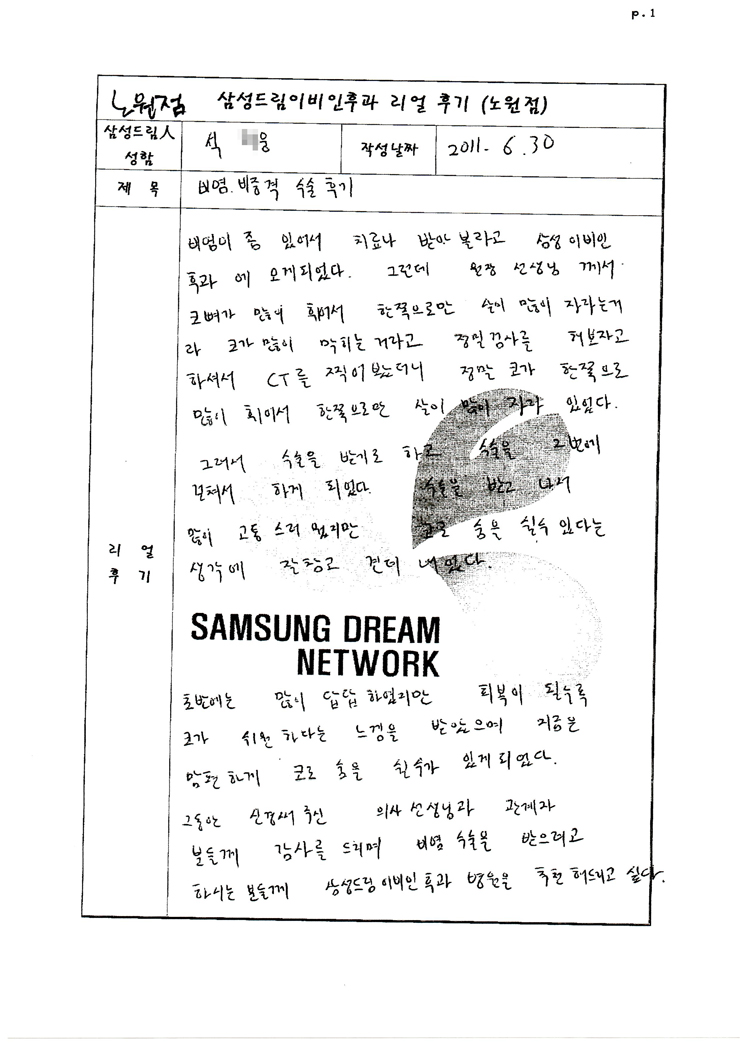 p.1
노원점 삼성드림이비인후과 리얼 후기 (노원점)
삼성드림人
성함
석 웅
작성날짜
2011. 6. 30
제 목
비염.비중격 수술 후기
리 얼
후 기
비염이 좀 있어서 치료나 받아 볼라고 삼성 이비인
후과에 오게되었다. 그런데 원장 선생님 께서
코뼈가 많이 휘어서 한쪽으로만 살이 많이 자라는거
라 코가 많이 막히는 거라고 정밀검사를 해보자고
하셔서 CT를 찍어 봤더니 정말 코가 한쪽으로
많이 휘어서 한쪽으로만 살이 많이 자라 있었다.
그래서 수술을 받기로 하고 수술을 2번에
걸쳐서 하게 되었다. 수술을 받고 나서
많이 고통 스러 웠지만 코로 숨을 쉴수 있다는
생각에 잘참고 견뎌 내었다.
SAMSUNG DREAM
NETWORK
초반에는 많이 답답 하였지만 회복이 될수록
코가 쉬원 하다는 느낌을 받았으며 지금은
맘편 하게 코로 숨을 쉴수가 있게 되었다.
그동안 신경써 주신 의사 선생님과 관계자
분들께 감사를 드리며 비염 수술을 받으려고
하시는 분들께 삼성드림 이비인 후과 병원을 추천 해드리고 싶다.